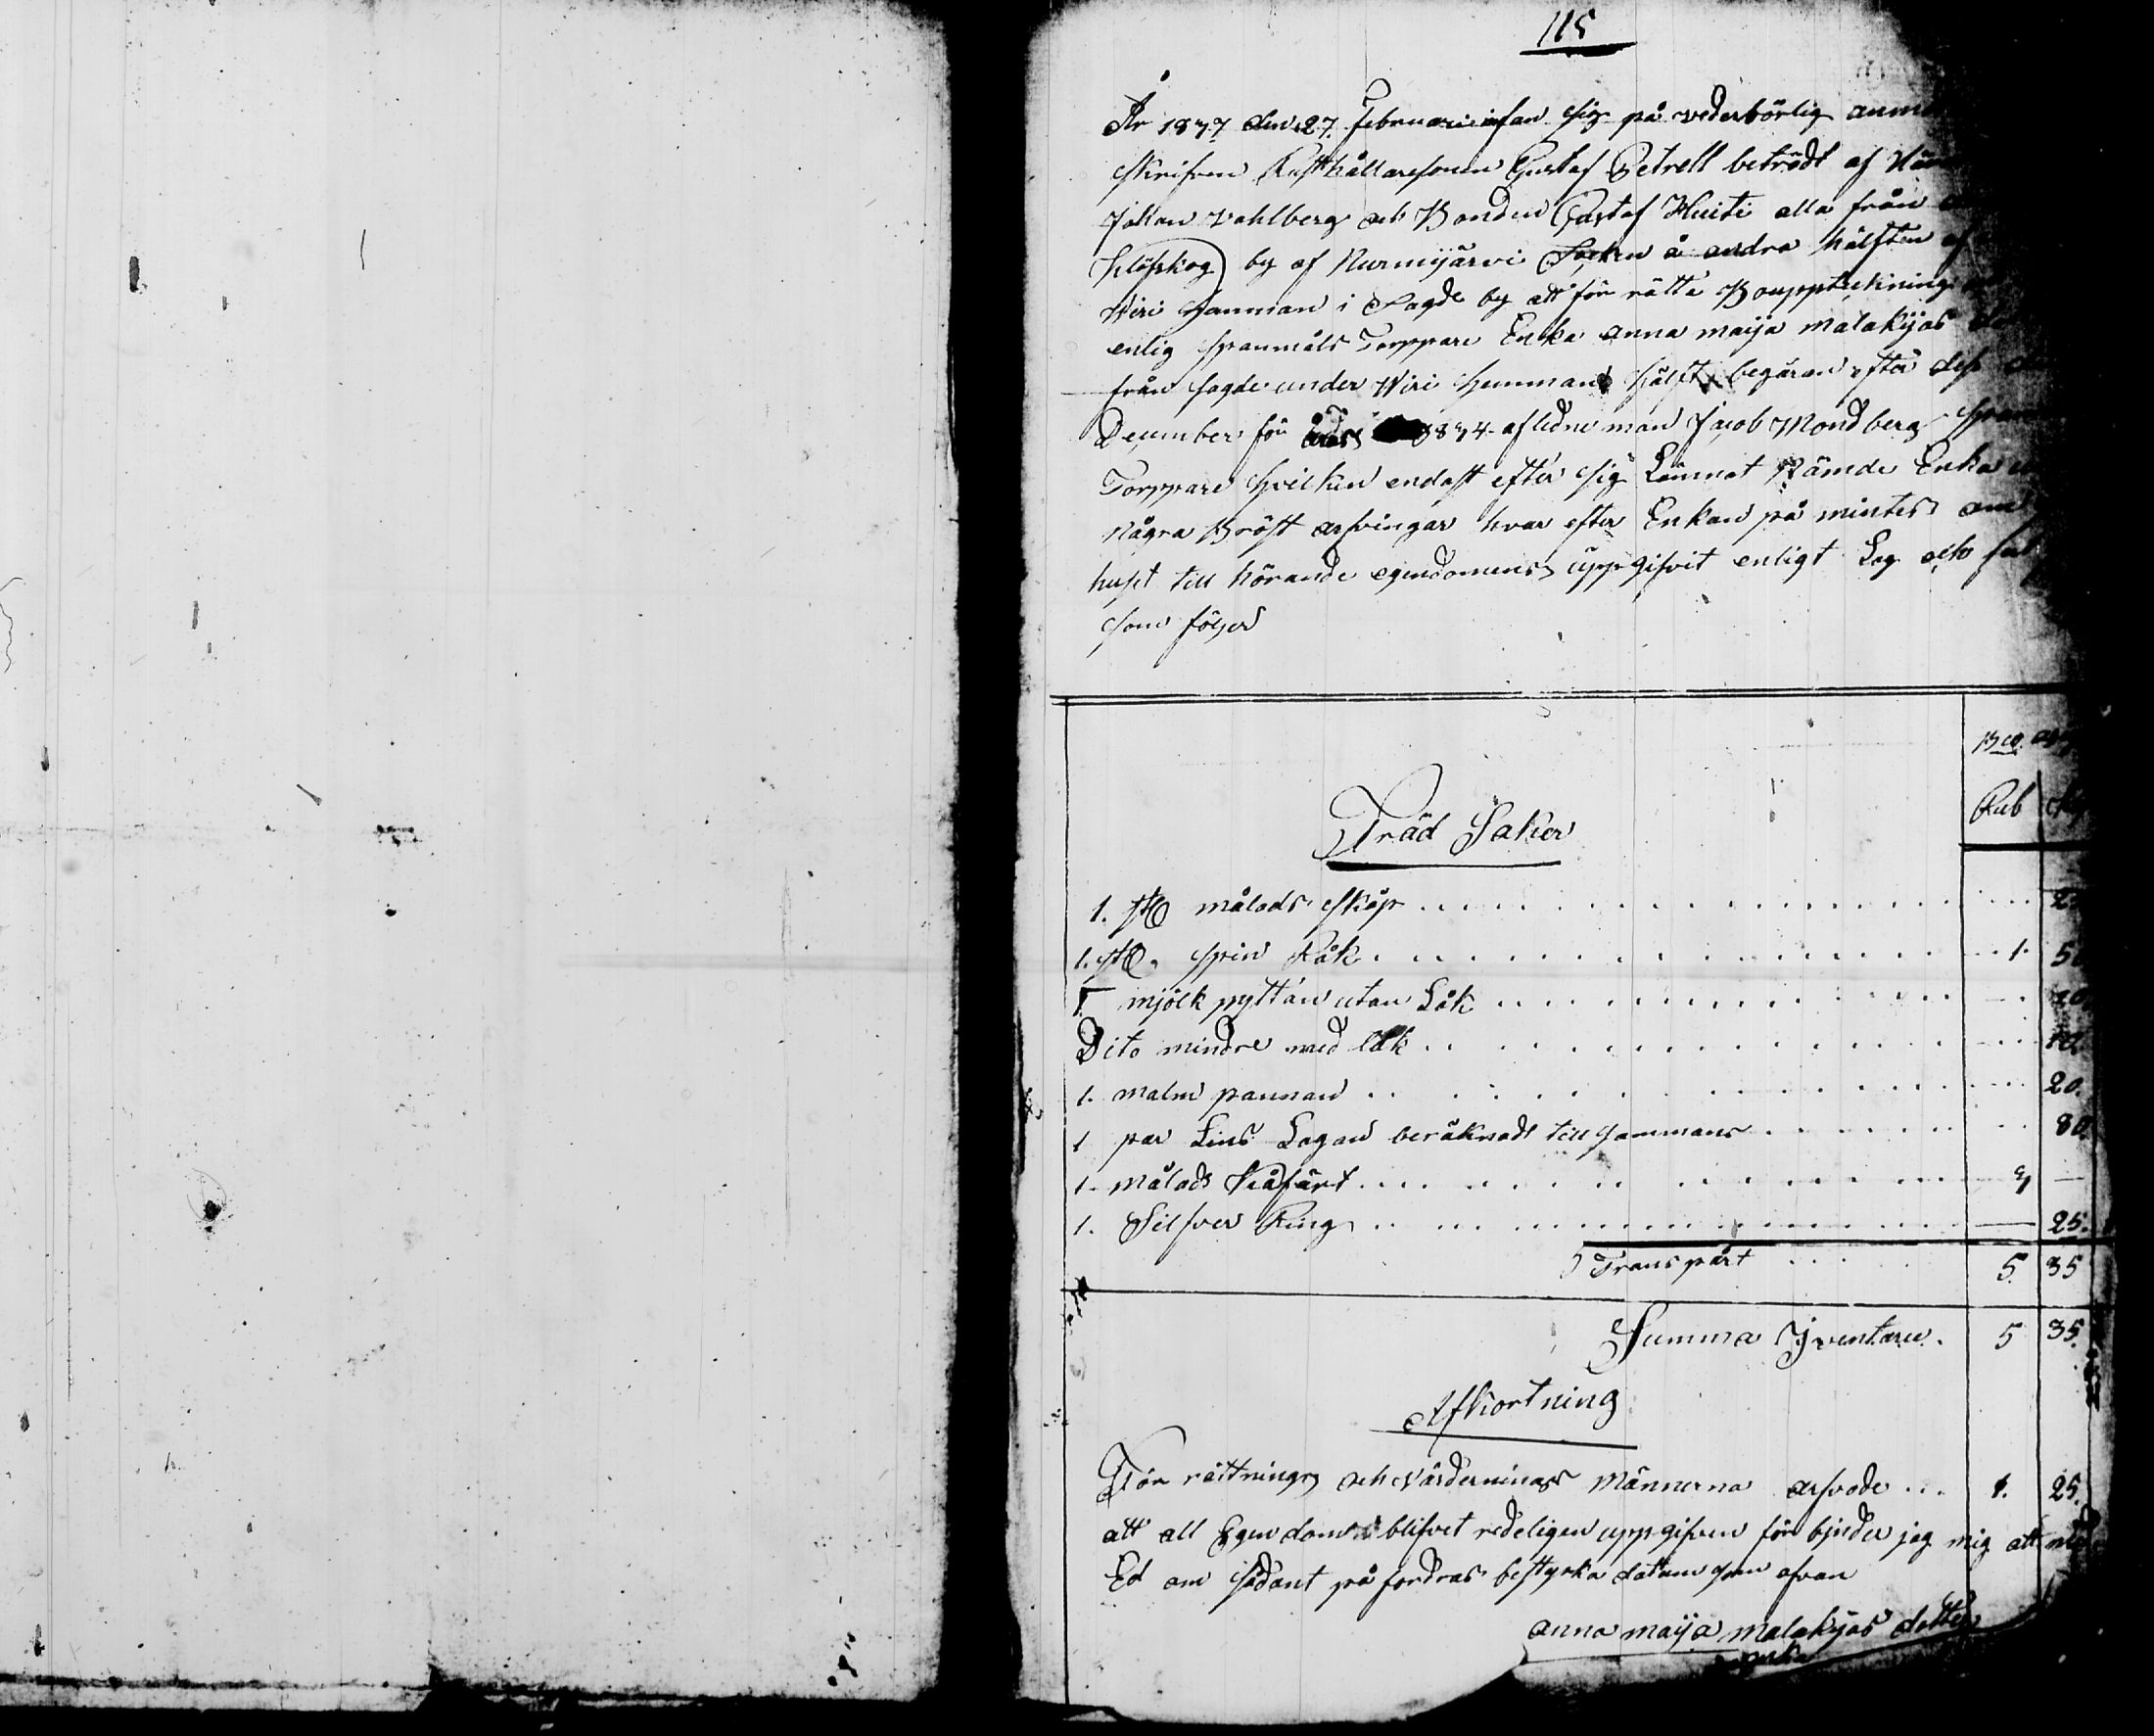 115
År 1837 den 27 Februari infan sig på vederbörlig anm
skrifven Rusthållaresonen Gustaf Petrell beträdt af Nä
Johan Wahlberg och Bonden Gustaf Huiti alla från
Klöfskog by af Nurmijärvi Socken å andra hälften af
Wiri Hemman i Sagde by att för rätta Bouppteckning
enlig spanmåls Torppare Enka anna maija malakijas
från sagde under Wiri Hemmans hälft begäran efter dess
December för året 1834 afledne man Jacob Mondberg span
Torppare hvilken endast efter sig Lämnat Nämde Enka
Några Bröst arfvingar hvar efter Enkan på mintes om
huset till hörande egendomens uppgifvit enligt Lag och
som följer
Bco
Rub
Träd Saker
1. st målads skåp . . . 2
1. st spin Råk . . . 1. 5
1 mjölk pyttan utan Låk . . . 20
Dito mindre med låk . . . 10
1. malm pannan . . . 20.
1 par Lins Lagan beräknads till samman . . . 80
1. målads . . . 3 —
1. Silfver Ring . . . — 25.
Transpårt . . . 5. 35
Summa Inventarii. 5 35.
Afkortning
För rättnings och Värdernings Männerna arfvode . . . 1. 25.
att all Egendom blifvet redeligen uppgifven för bjuder jag mig att
Ed om sådant på fordras bestyrka datum som ofvan
anna maija malakijas dotter
enka